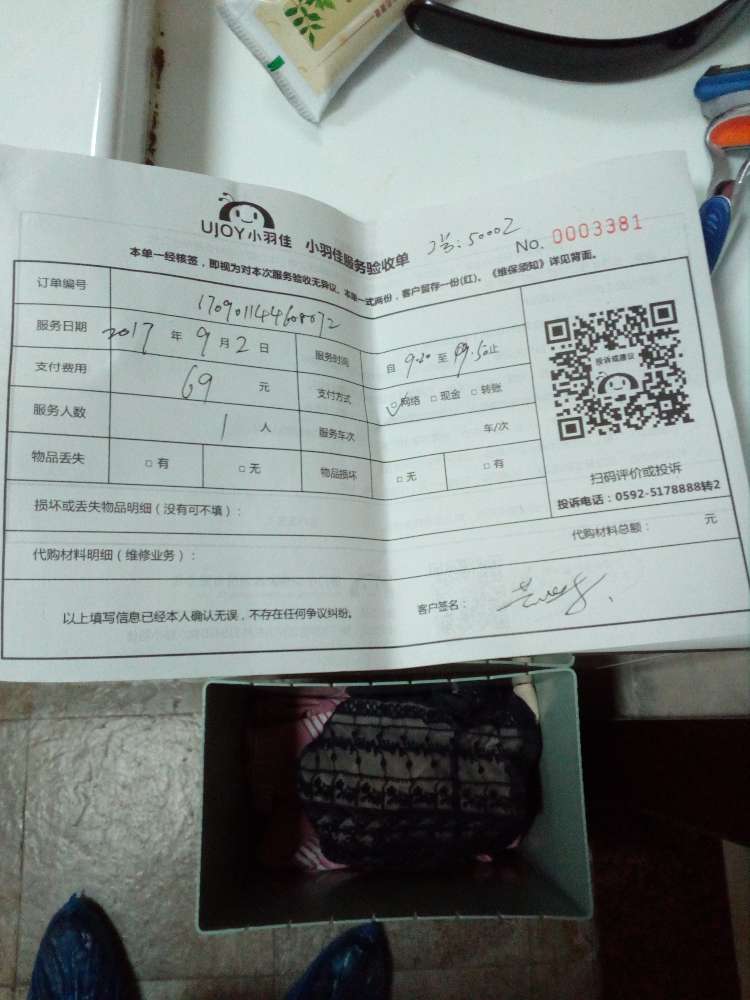 UJOY小羽佳 小羽佳服务验收单 工号:50002 No. 0003381
本单一经核签，即视为对本次服务验收无异议。本单一式两份，客户留存一份(红)。《维保须知》详见背面。
订单编号 170901144608072
服务日期 2017 年 9 月 2 日 服务时间 自 9.20 至 09.50止
支付费用 69 元 支付方式 □网络 □现金 □转账
服务人数 1 人 服务车次 车/次
物品丢失 □有 □无 物品损坏 □无 □有
投诉或建议
扫码评价或投诉
投诉电话：0592-5178888转2
损坏或丢失物品明细（没有可不填）：
代购材料明细（维修业务）： 代购材料总额： 元
以上填写信息已经本人确认无误，不存在任何争议纠纷。 客户签名：